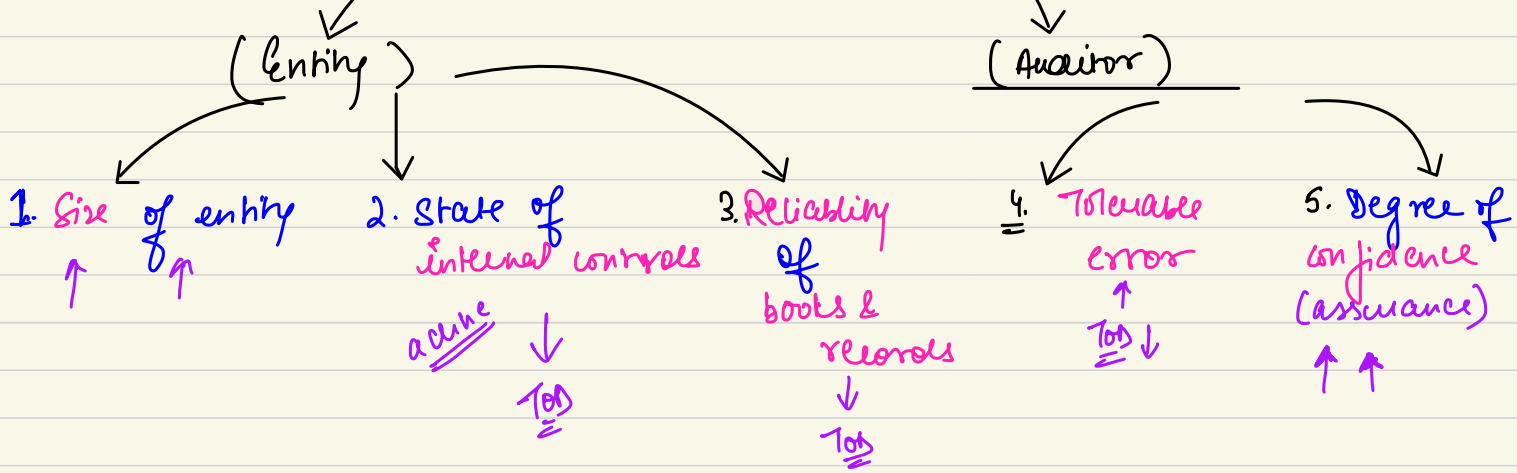 (Entity) (Auditor)
1. Size of entity
2. State of
internal controls
TOD
3. Reliability
of
books &
records
TOD
4. Tolerable
error
TOD
5. Degree of
confidence
(assurance)